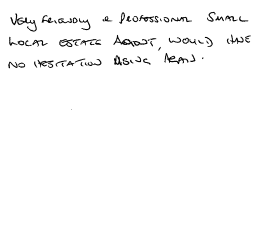 Very friendly & professional small
local estate agent, would have
no hesitation using again.